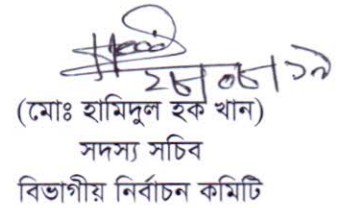 ২৮/০৮/১৯
(মোঃ হামিদুল হক খান)
সদস্য সচিব
বিভাগীয় নির্বাচন কমিটি